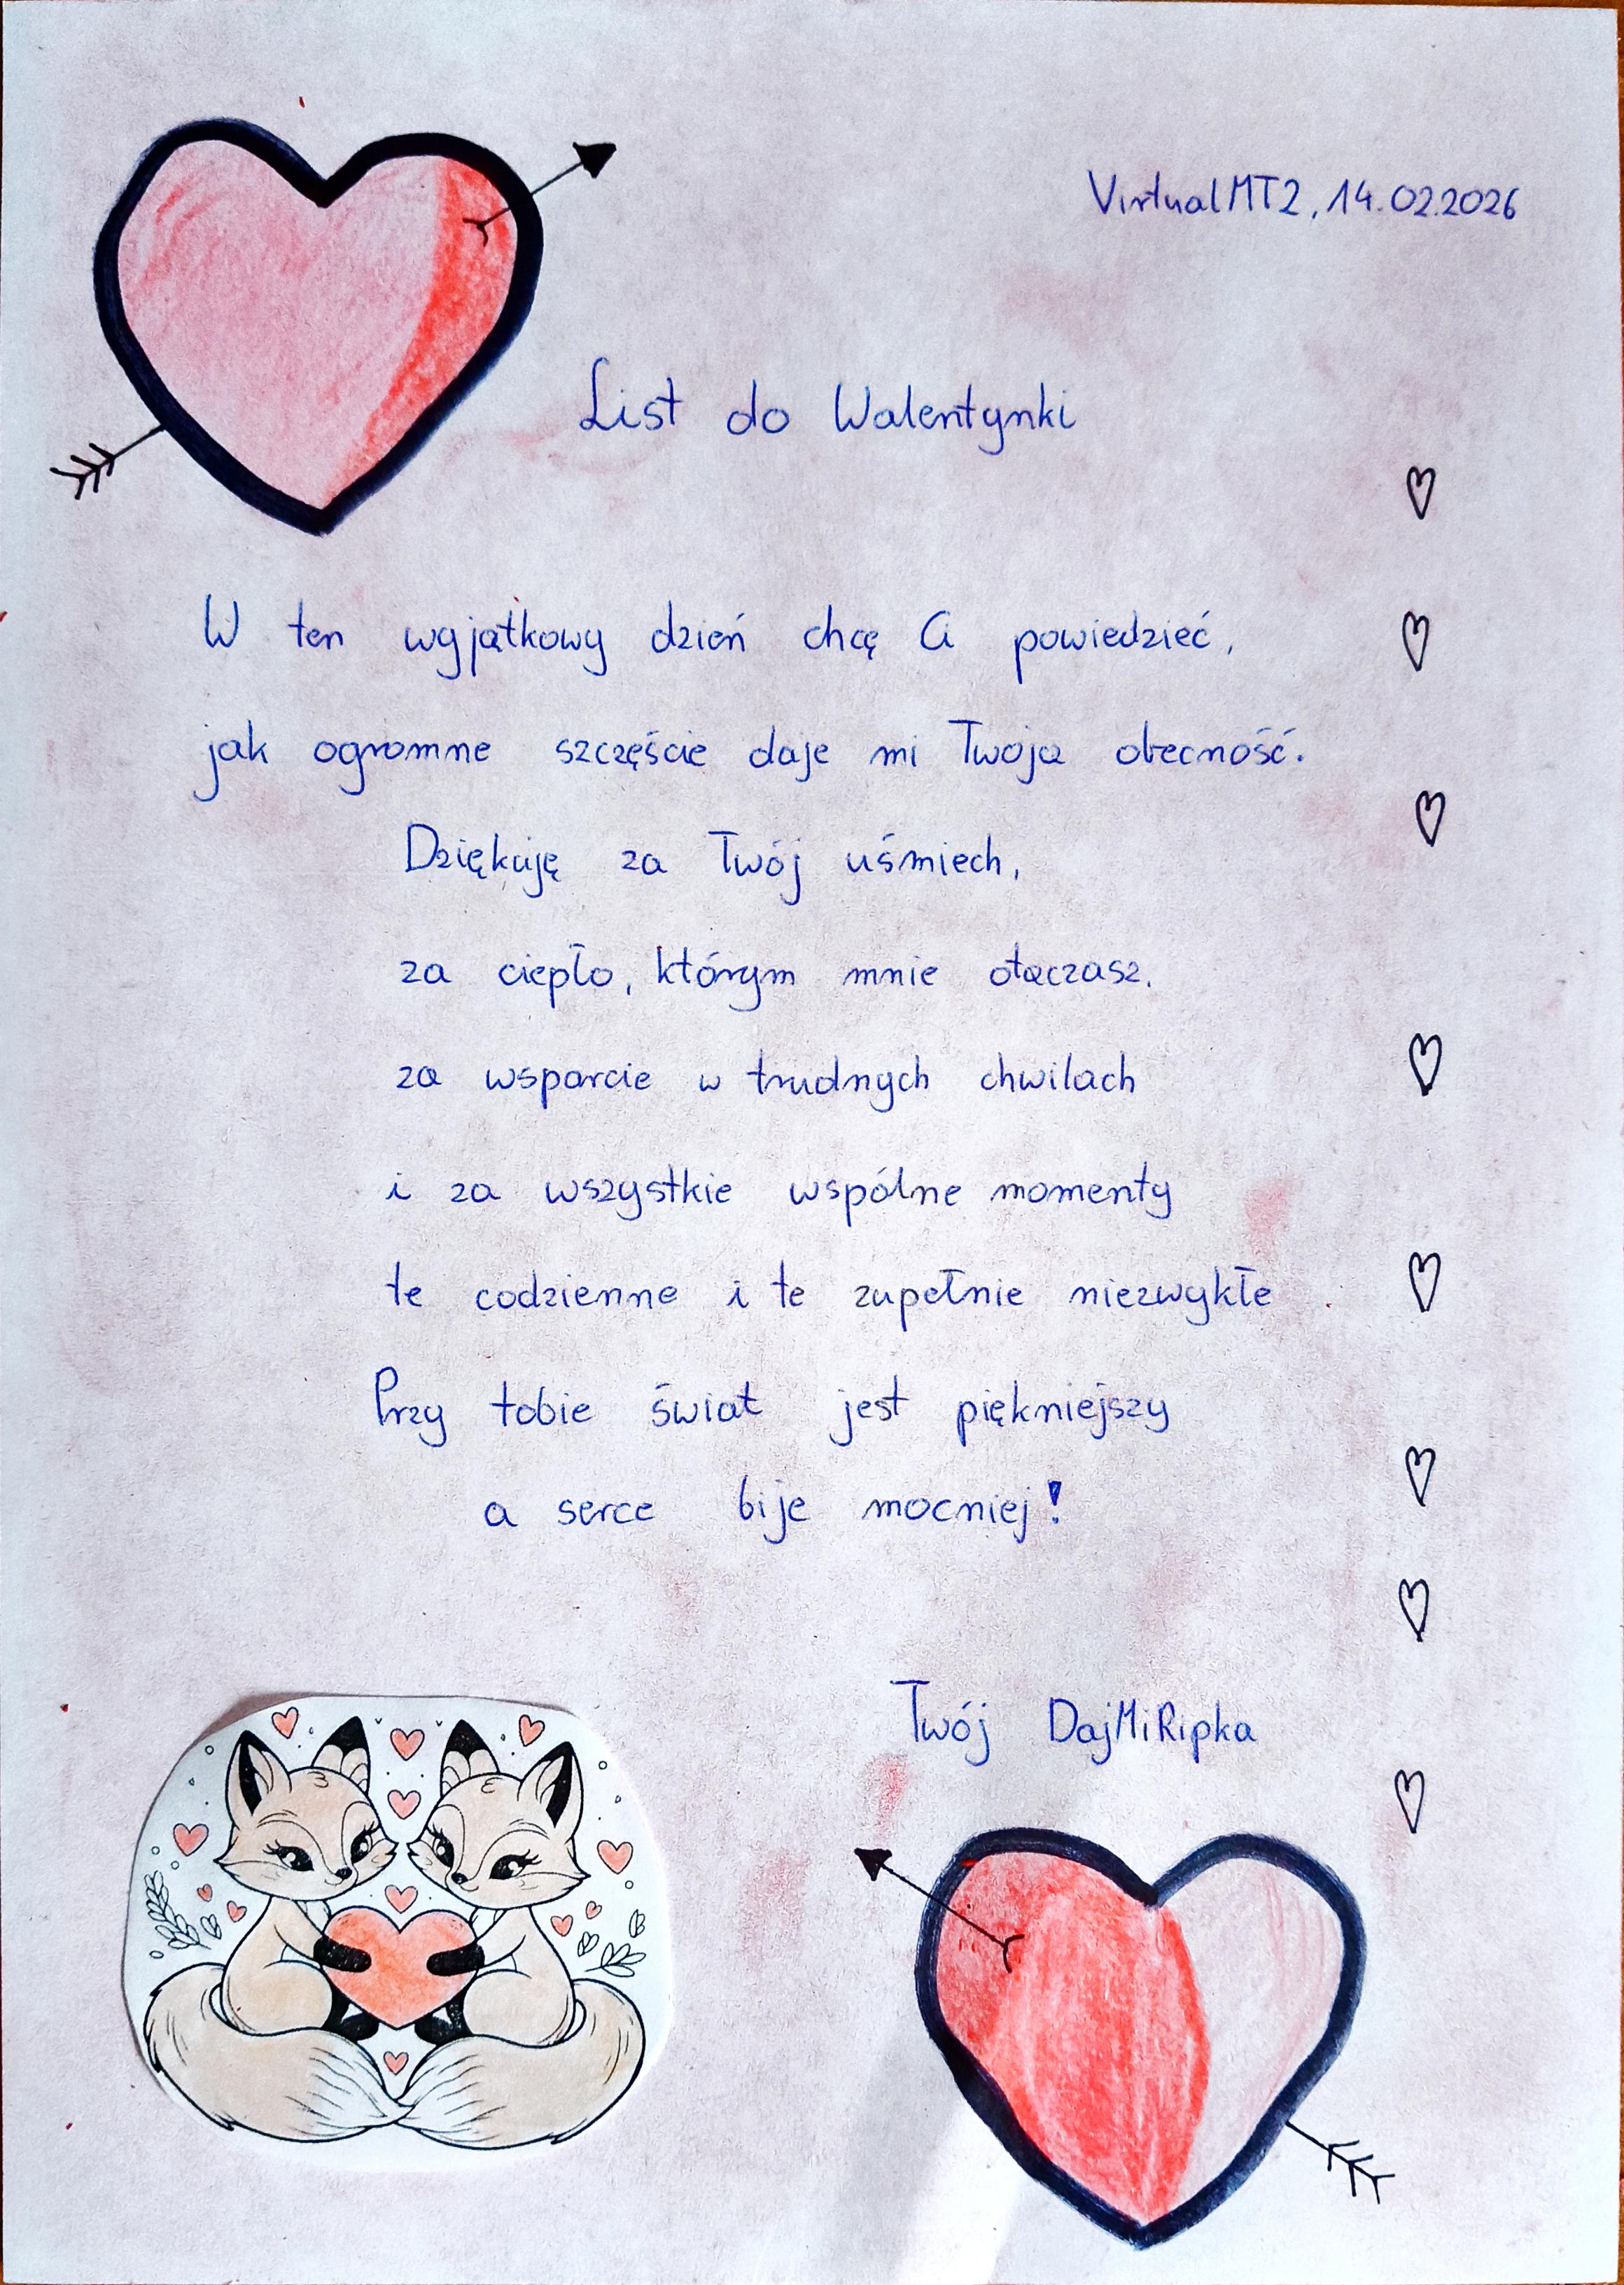 VirtualMT2, 14.02.2026
List do Walentynki
W ten wyjątkowy dzień chcę Ci powiedzieć,
jak ogromne szczęście daje mi Twoja obecność.
Dziękuję za Twój uśmiech,
za ciepło, którym mnie otaczasz.
za wsparcie w trudnych chwilach
i za wszystkie wspólne momenty
te codzienne i te zupełnie niezwykłe
Przy tobie świat jest piękniejszy
a serce bije mocniej!
Twój DajMiRipka